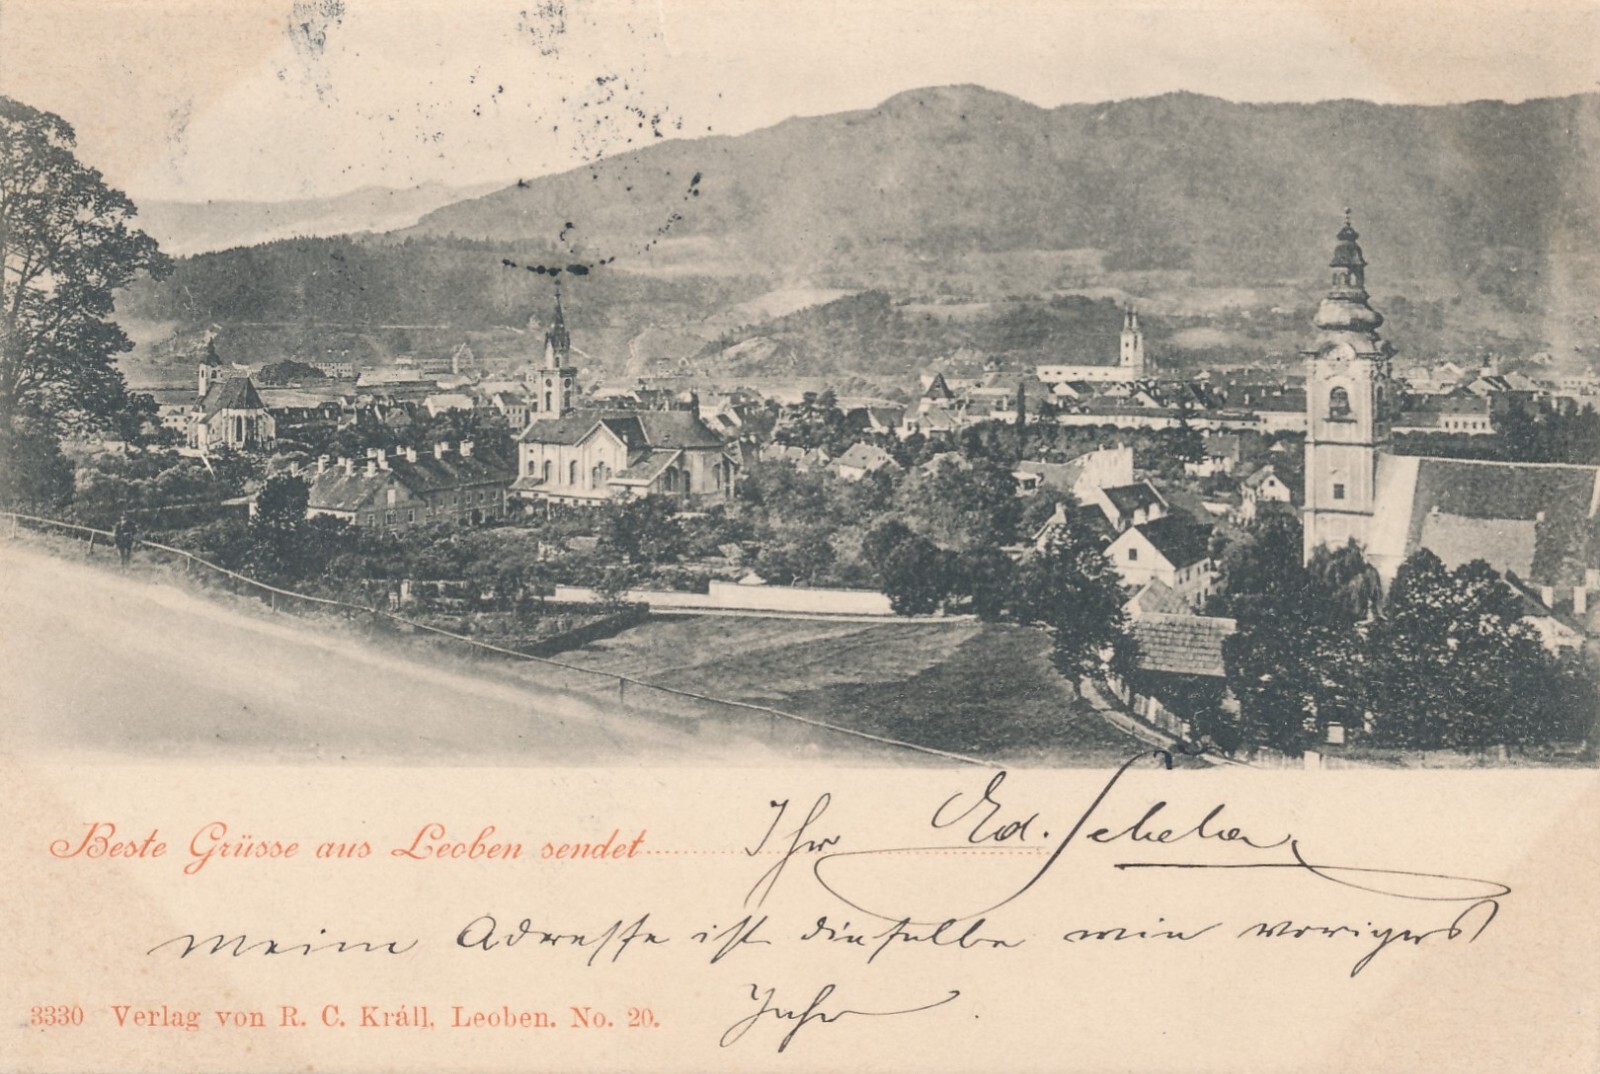 Beste Grüsse aus Leoben sendet Ihr Ed.
Meine Adresse ist dieselbe wie voriges
Jahr.
3330 Verlag von R. C. Králl, Leoben. No. 20.